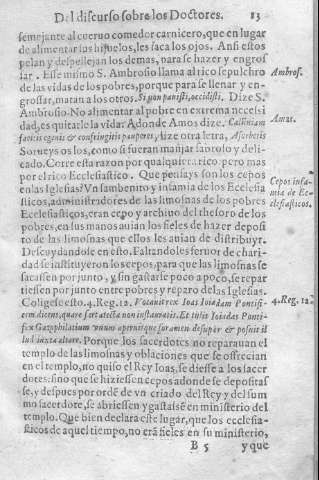 Del discurso sobre los Doctores. 13
semejante al cueruo comedor carnicero, que en lugar
de alimentar las hijuelos, les saca los ojos. Ansi estos
pelan y despellejan los demas, para se hazer y engros
sar. Esse mismo S. Ambrosio llama al rico sepulchro
de las vidas de los pobres, porque para se llenar y en-
grossar, matan a los otros. Si non panisti, occidisti. Dize S.
Ambrosio. No alimentar al pobre en extrema necessi
dad, es quitarle la vida. Adonde Amos dize.
facitis egenis & confringitis pauperes, dize otra letra,
Sorueys os los, como si fueran manjar sabroso y deli-
cado. Corre esta razon por qualquiera rico, pero mas
por el rico Ecclesiastico. Que pensays son los cepos
en las Iglesias? Vn sambenito y infamia de los Ecclesia
sticos, administradores de las limosnas de los pobres
Ecclesiasticos, eran cepo y archiuo del thesoro de los
pobres, en sus manos auian los fieles de hazer deposi
to de las limosnas que ellos les auian de distribuyr.
Descuydandole en esto, Faltandoles feruor de chari-
dad se instituyeron los cepos, para que las limosnas se
sacassen por junto, y sin gastarse poco a poco, se repar
tiessen por junto entre pobres y reparo de las Iglesias.
Coligese esto. 4. Reg. 12. Vocauit rex Ioas Ioiadam Pontifi
cem dicens, quare sartatecta non instauratis. Et tulit Ioiadas Ponti-
fex Gazophilatium vnum aperuitque foramen desuper & posuit il
lud iuxta altare. Porque los sacerdotes no reparauan el
templo de las limosnas y oblaciones que se offrecian
en el templo, no quiso el Rey Ioas, se diesse a los sacer
dotes: sino que se hiziessen cepos adonde se depositas
se, y despues por ordẽ de vn criado del Rey y del sum
mo sacerdote, se abriessen y gastassẽ en ministerio del
templo. Que bien declara este lugar, que los ecclesia-
sticos de aquel tiempo, no erã fieles en su ministerio,
B 5 y que
Ambros.
Amar.
Cepos infa-
mia de Ec-
clesiasticos.
4. Reg. 12.